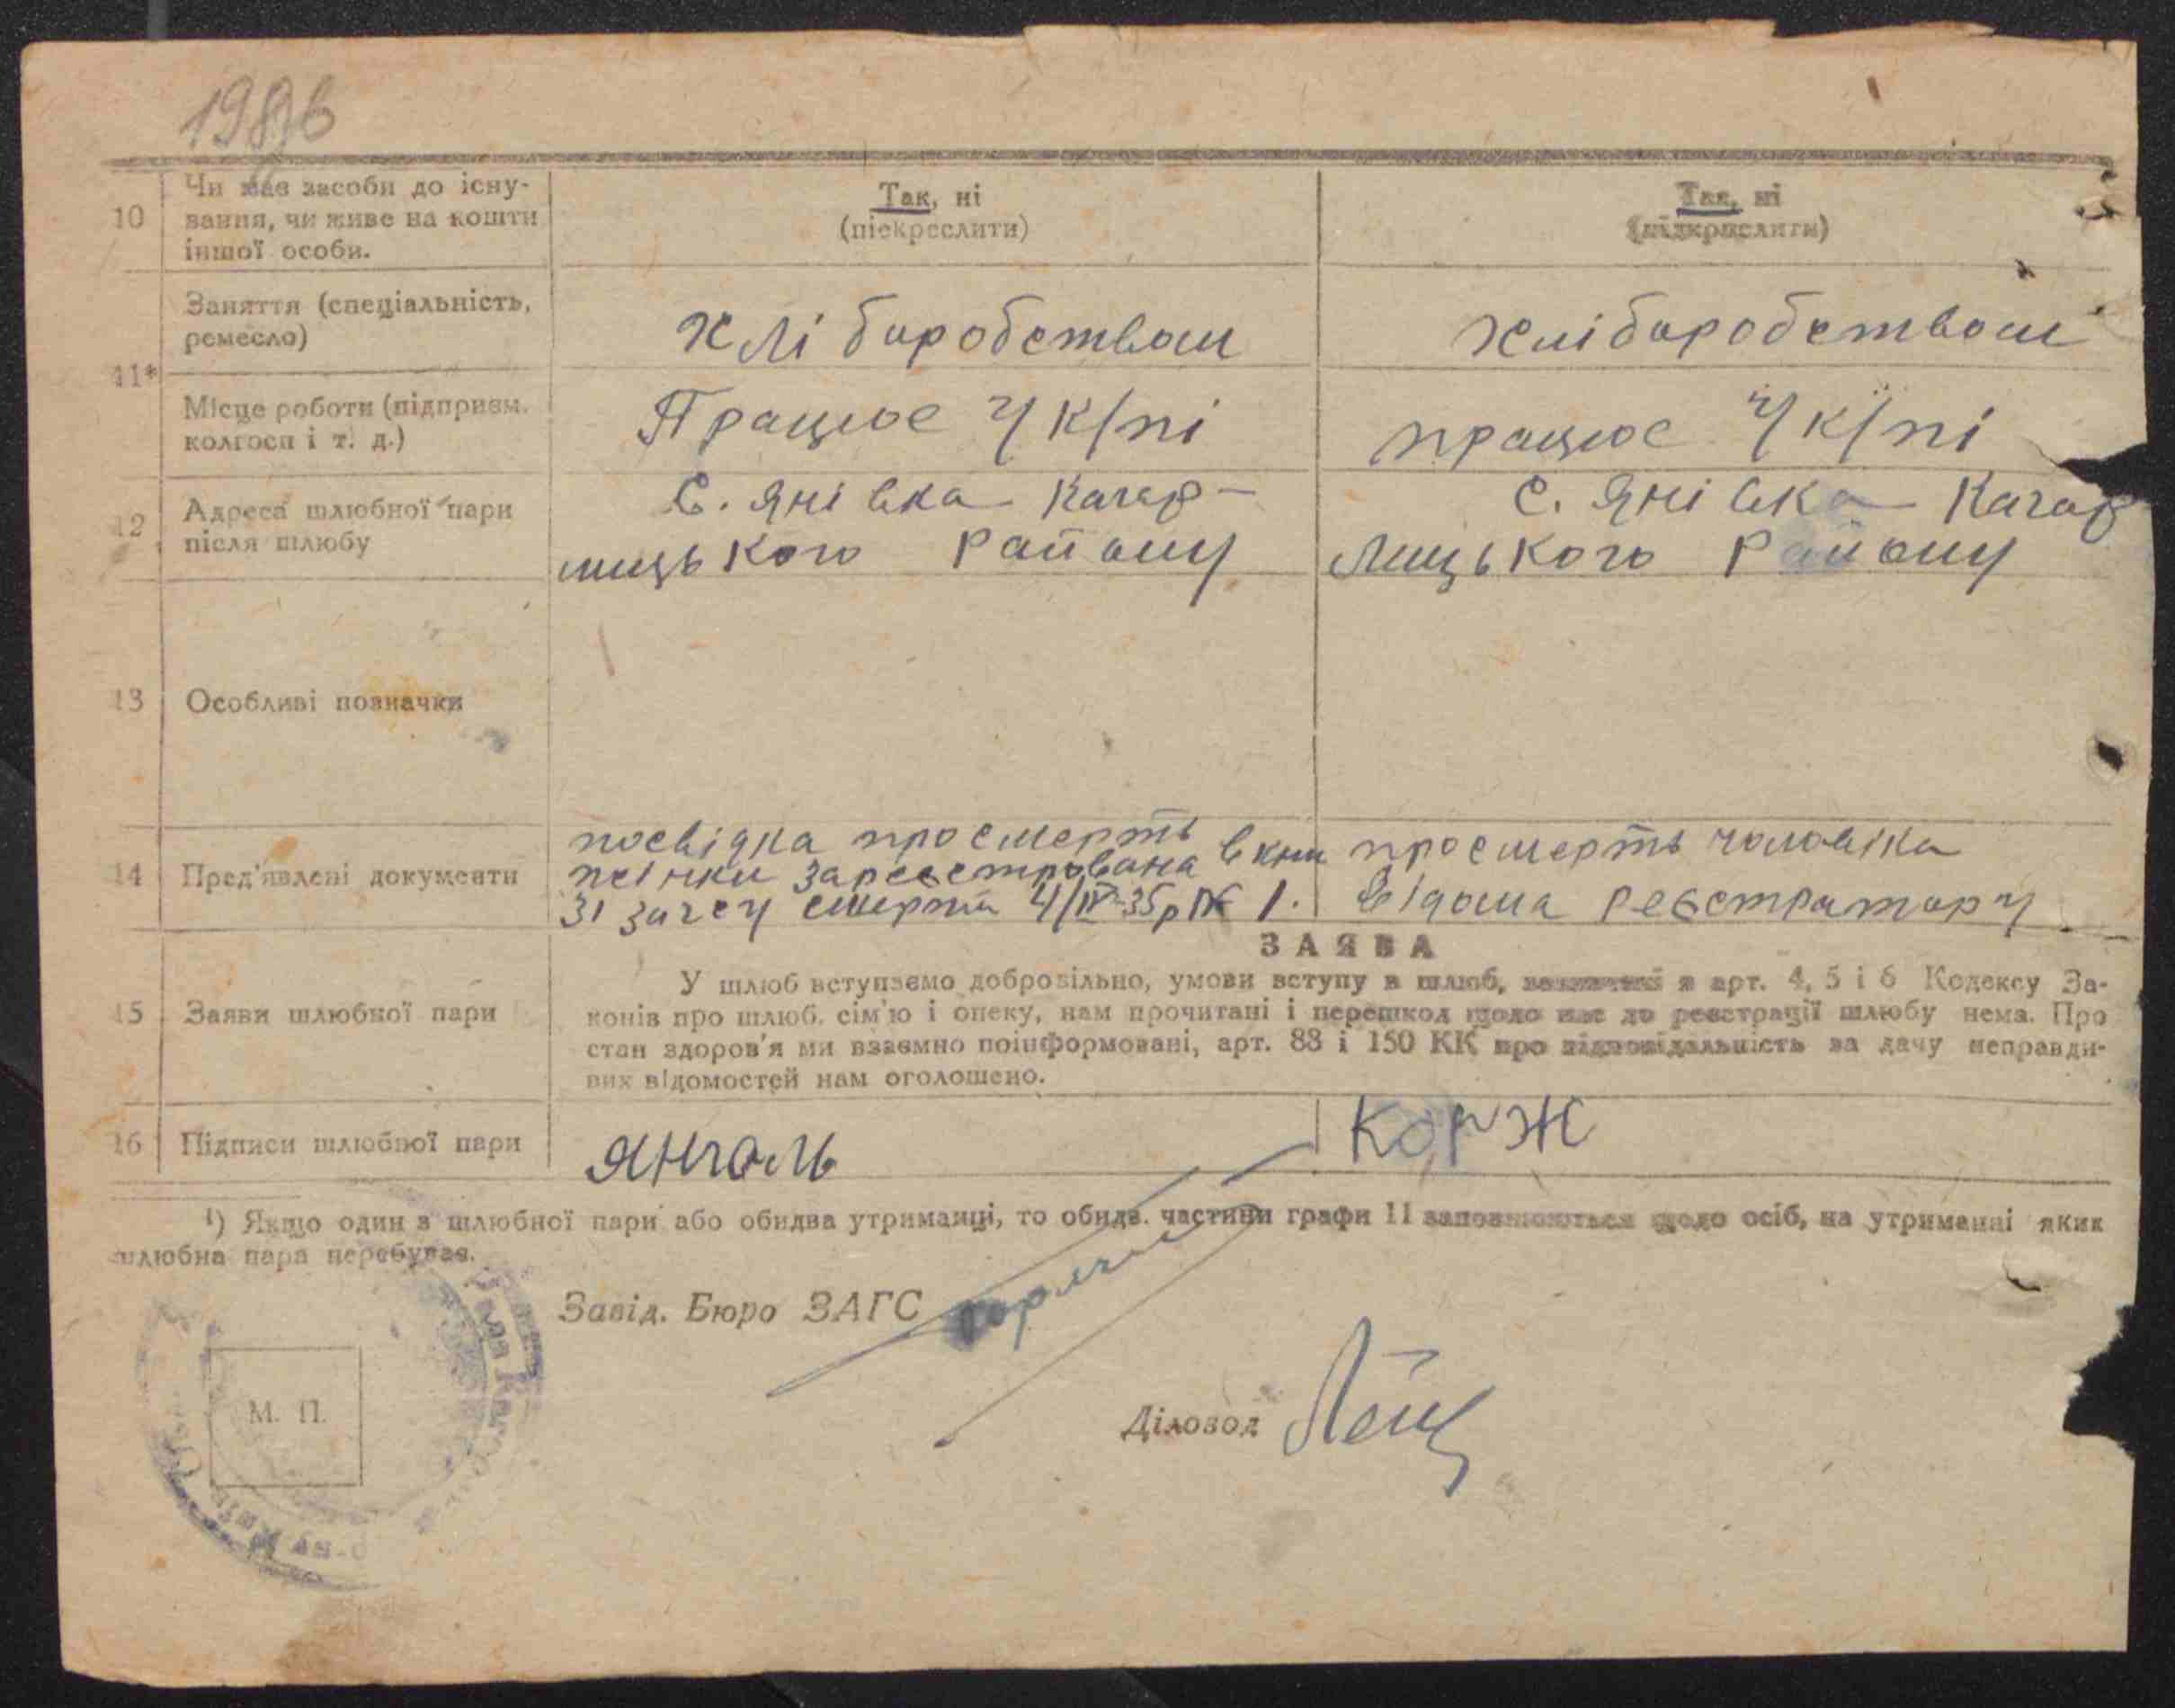 10
Чи має засоби до існу-
вання, чи живе на кошти
іншої особи.
Так, ні
(піекреслити)
Так, ні
(підкреслити)
11*
Заняття (спеціальність,
ремесло)
Хліборобством
Хліборобством
Місце роботи (підприєм.
колгосп і т. д.)
Працює у к/пі
працює у к/пі
12
Адреса шлюбної пари
після шлюбу
С. Янівка Кагар-
лицького Району
с. Янівка Кагар
лицького Району
13
Особливі позначки
14
Пред'явлені документи
посвідка просмерть
жінки зареєстрована в кни
зі загсу смерти 4/IV-35р № 1.
просмерть чоловіка
Відома реєстратору
15
Заяви шлюбної пари
ЗАЯВА
У шлюб вступаємо добровільно, умови вступу в шлюб, зазначені в арт. 4, 5 і 6 Кодексу За-
конів про шлюб. сім'ю і опеку, нам прочитані і перешкод щодо нас до реєстрації шлюбу нема. Про
стан здоров'я ми взаємно поінформовані, арт. 88 і 150 КК про відповідальність за дачу неправди-
вих відомостей нам оголошено.
16
Підписи шлюбної пари
Янголь
Корж
¹) Якщо один з шлюбної пари або обидва утриманці, то обидв. частини графи 11 заповнюються щодо осіб, на утриманні яких
шлюбна пара перебуває.
Завід. Бюро ЗАГС
М. П.
Діловод